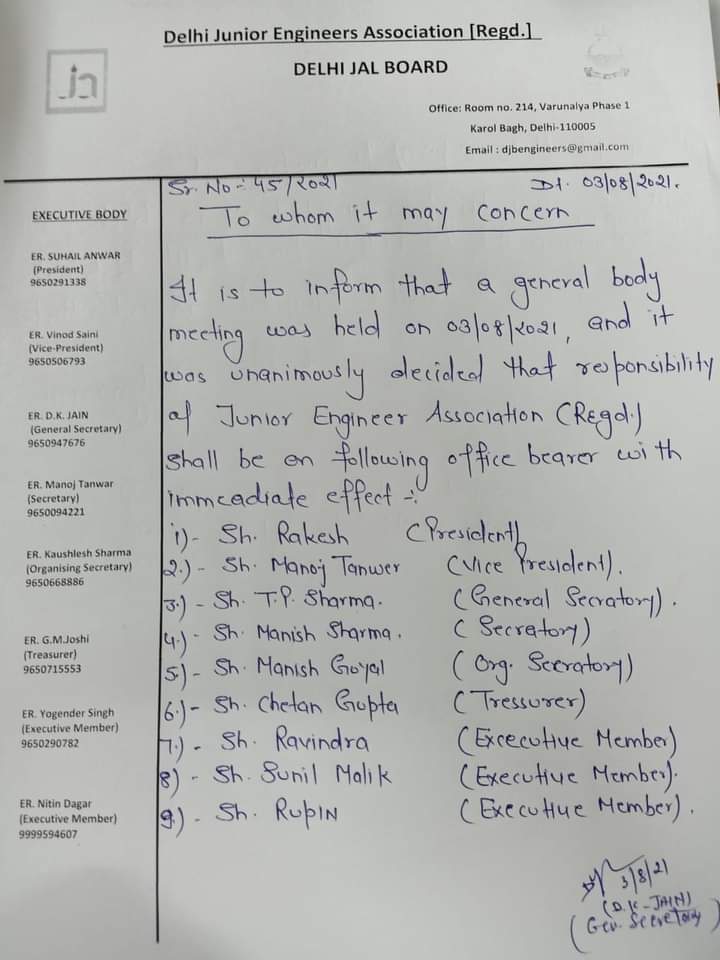 Delhi Junior Engineers Association [Regd.]
DELHI JAL BOARD
Office: Room no. 214, Varunalya Phase 1
Karol Bagh, Delhi-110005
Email : djbengineers@gmail.com
Sr. No :- 45/2021 Dt. 03/08/2021.
To whom it may concern
EXECUTIVE BODY
ER. SUHAIL ANWAR
(President)
9650291338
ER. Vinod Saini
(Vice-President)
9650506793
ER. D.K. JAIN
(General Secretary)
9650947676
ER. Manoj Tanwar
(Secretary)
9650094221
ER. Kaushlesh Sharma
(Organising Secretary)
9650668886
ER. G.M.Joshi
(Treasurer)
9650715553
ER. Yogender Singh
(Executive Member)
9650290782
ER. Nitin Dagar
(Executive Member)
9999594607
It is to inform that a general body
meeting was held on 03/08/2021, and it
was unanimously decided that responsibility
of Junior Engineer Association (Regd.)
shall be on following office bearer with
immeadiate effect :-
1)- Sh. Rakesh (President)
2.)- Sh. Manoj Tanwer (Vice President).
3.)- Sh. T.P. Sharma. (General Secratory).
4.)- Sh. Manish Sharma. (Secretory)
5.)- Sh. Manish Goyal (Org. Secratory)
6.)- Sh. Chetan Gupta (Tressurer)
7.)- Sh. Ravindra (Excecutive Member)
8)- Sh. Sunil Malik (Executive Member).
9.)- Sh. RUPIN (Executive Member).
3/8/21
(D.K-JAIN)
(Gen. Secretory)